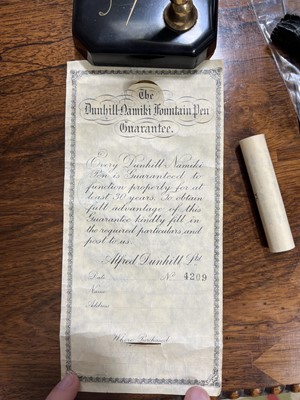 The
Dunhill-Namiki Fountain Pen
Guarantee.
Every Dunhill-Namiki
Pen is Guaranteed to
function properly for at
least 30 years. To obtain
full advantage of this
Guarantee kindly fill in
the required particulars and
post to us.
Alfred Dunhill Ltd
Date
No 4209
Name
Address
Where Purchased